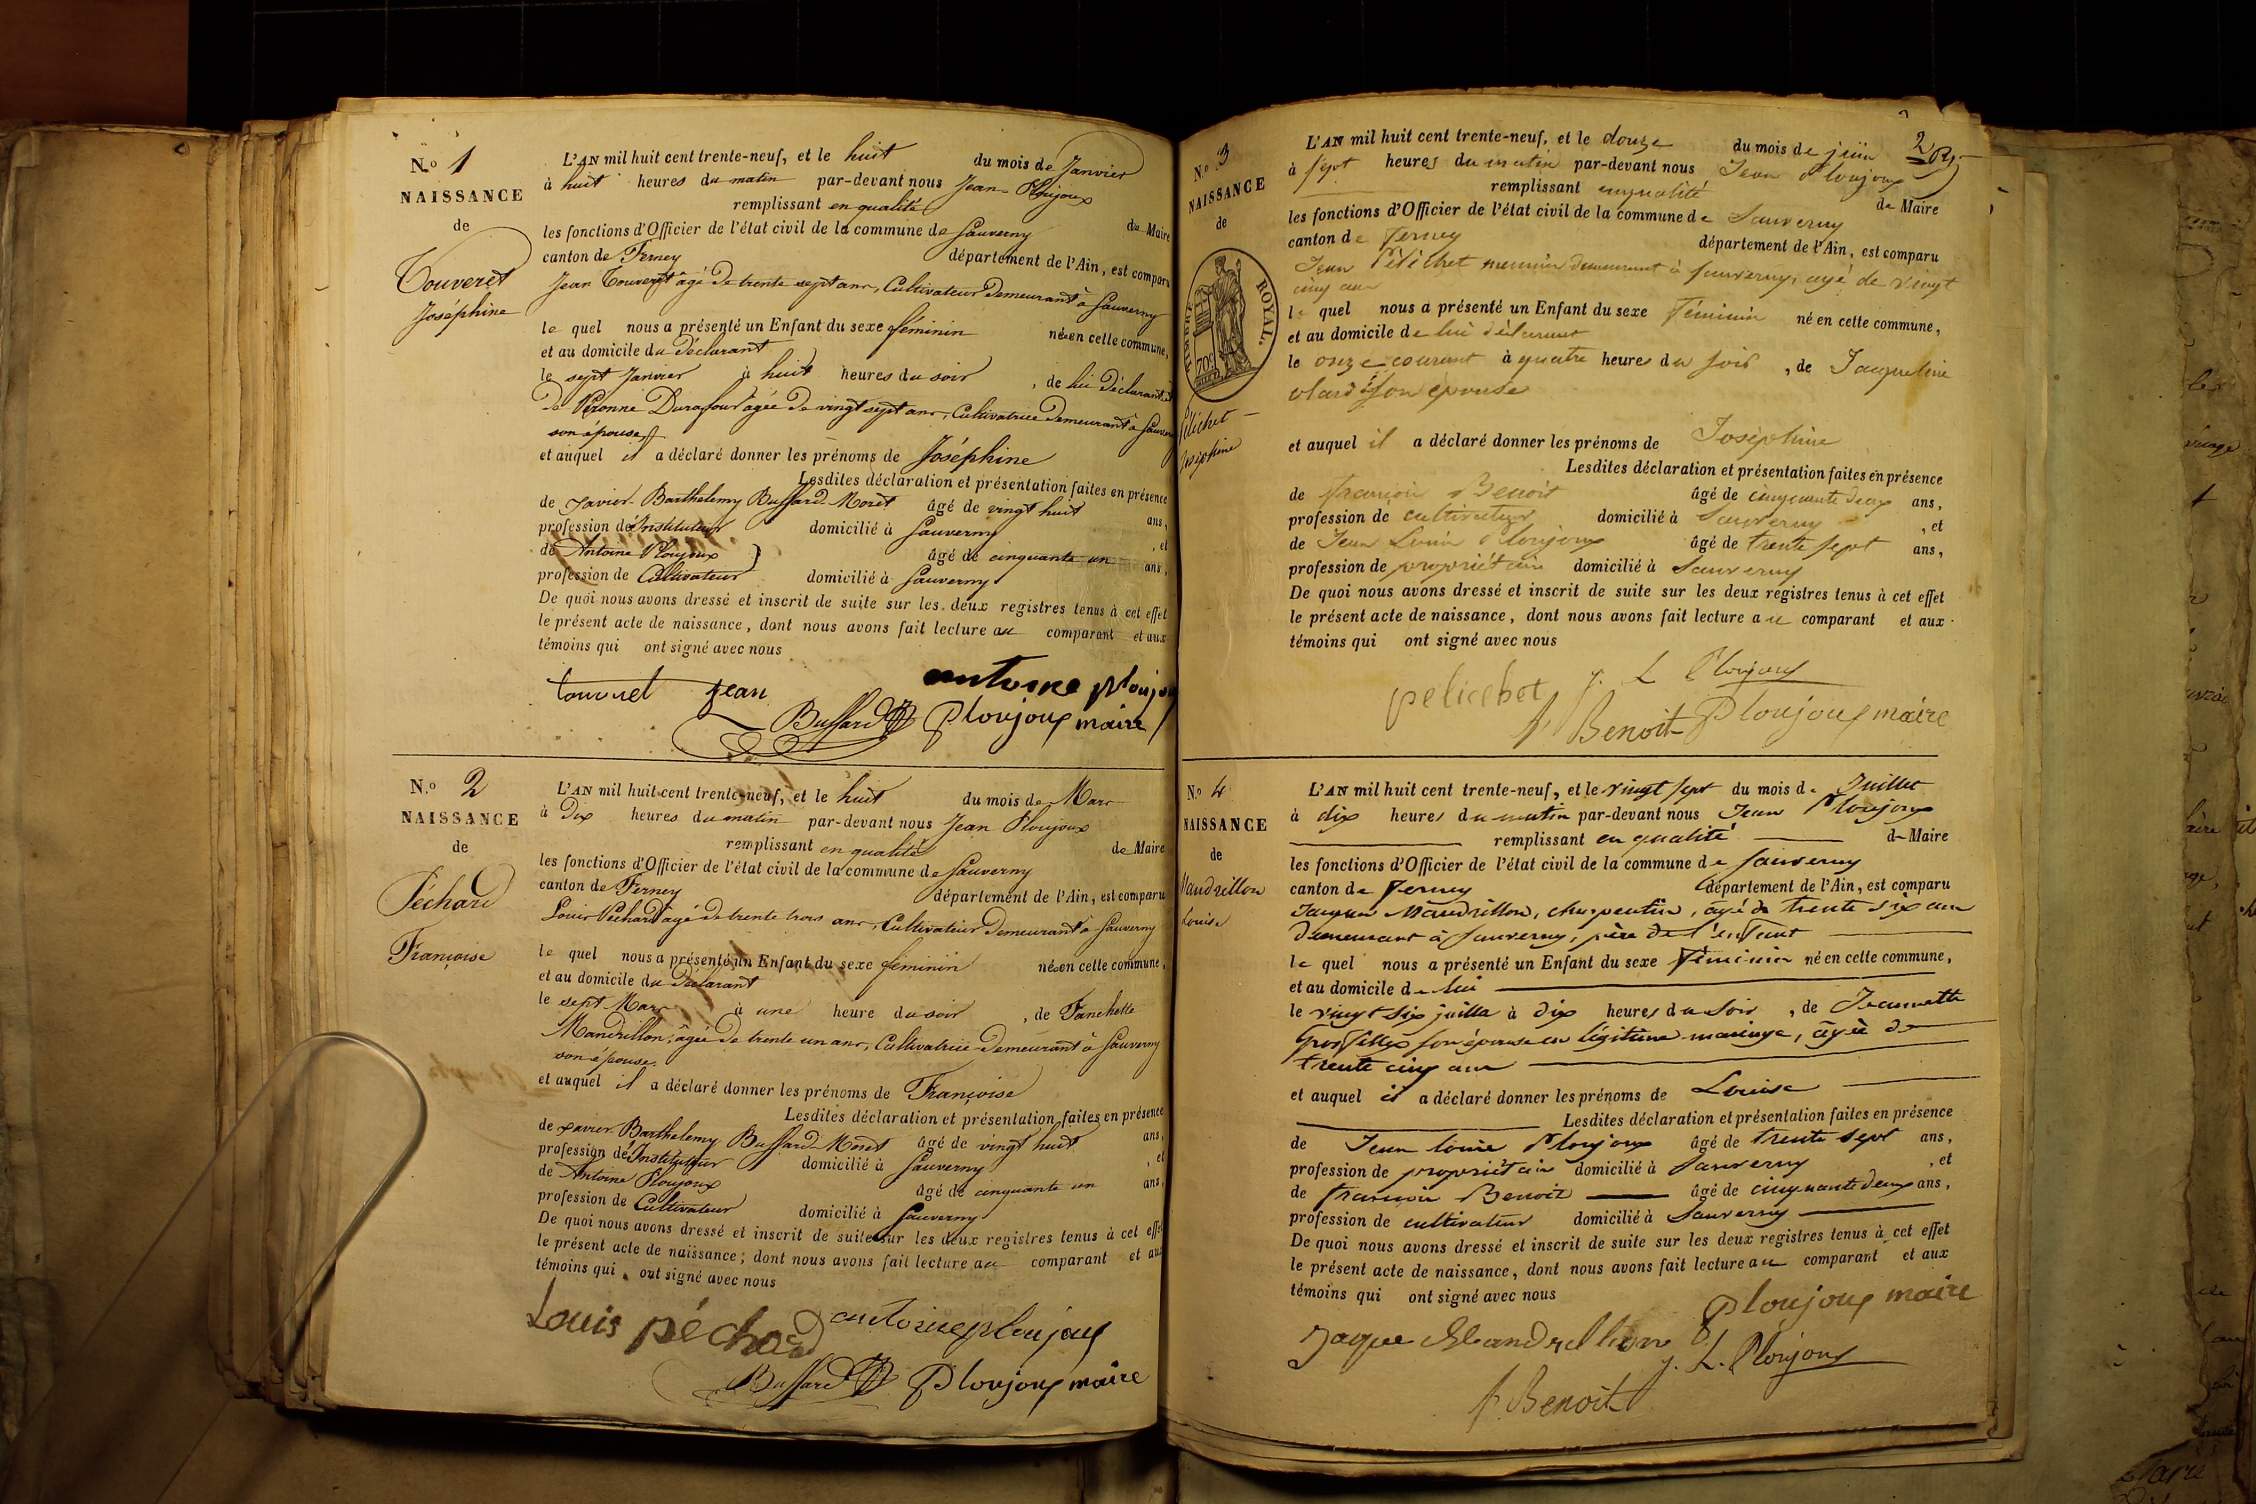 N.o 1
NAISSANCE
de
Touveret
Joséphine
L'AN mil huit cent trente-neuf, et le huit du mois de Janvier
à huit heures du matin par-devant nous Jean Ploujoux
remplissant en qualité de Maire
les fonctions d'Officier de l'état civil de la commune de Sauverny
canton de Ferney département de l'Ain, est comparu
Jean Touveret âgé de trente sept ans, Cultivateur Demeurant à Sauverny
le quel nous a présenté un Enfant du sexe féminin née en cette commune,
et au domicile du Déclarant
le sept Janvier à huit heures du soir, de lui Déclarant et
de Péronne Durafour âgée de vingt sept ans, Cultivatrice Demeurant à Sauverny
son épouse
et auquel il a déclaré donner les prénoms de Joséphine
Lesdites déclaration et présentation faites en présence
de Xavier Barthelemy Buffard-Moret âgé de vingt huit ans,
profession de Instituteur domicilié à Sauverny, et
de Antoine Ploujoux âgé de cinquante un ans,
profession de Cultivateur domicilié à Sauverny
De quoi nous avons dressé et inscrit de suite sur les deux registres tenus à cet effet
le présent acte de naissance, dont nous avons fait lecture au comparant et aux
témoins qui ont signé avec nous
touveret jean antoine ploujoux
Buffard Ploujoux maire
N.o 2
NAISSANCE
de
Péchard
Françoise
L'AN mil huit cent trente-neuf, et le huit du mois de Mars
à Dix heures du matin par-devant nous Jean Ploujoux
remplissant en qualité de Maire
les fonctions d'Officier de l'état civil de la commune de Sauverny
canton de Ferney département de l'Ain, est comparu
Louis Péchard âgé de trente trois ans, Cultivateur Demeurant à Sauverny
le quel nous a présenté un Enfant du sexe féminin née en cette commune,
et au domicile du Déclarant
le sept Mars à une heure du soir, de Fanchette
Mandrillon, âgée de trente un ans, Cultivatrice Demeurant à Sauverny
son épouse.
et auquel il a déclaré donner les prénoms de Françoise
Lesdites déclaration et présentation faites en présence
de Xavier Barthelemy Buffard-Moret âgé de vingt huit ans,
profession de Instituteur domicilié à Sauverny, et
de Antoine Ploujoux âgé de cinquante un ans,
profession de Cultivateur domicilié à Sauverny
De quoi nous avons dressé et inscrit de suite sur les deux registres tenus à cet effet
le présent acte de naissance; dont nous avons fait lecture au comparant et aux
témoins qui ont signé avec nous
Louis péchard antoine ploujoux
Buffard Ploujoux maire
2
N.o 3
NAISSANCE
de
TIMBRE ROYAL.
70c
Pélichet
Joséphine
L'AN mil huit cent trente-neuf, et le douze du mois de juin
à sept heures du matin par-devant nous Jean Ploujoux
remplissant en qualité de Maire
les fonctions d'Officier de l'état civil de la commune de Sauverny
canton de Ferney département de l'Ain, est comparu
Jean Pélichet meunier demeurant à Sauverny, âgé de vingt
cinq ans
le quel nous a présenté un Enfant du sexe féminin né en cette commune,
et au domicile de lui déclarant
le onze courant à quatre heures du soir, de Jacqueline
son épouse
et auquel il a déclaré donner les prénoms de Joséphine
Lesdites déclaration et présentation faites en présence
de François Benoit âgé de cinquante deux ans,
profession de cultivateur domicilié à Sauverny, et
de Jean Louis Ploujoux âgé de trente sept ans,
profession de propriétaire domicilié à Sauverny
De quoi nous avons dressé et inscrit de suite sur les deux registres tenus à cet effet
le présent acte de naissance, dont nous avons fait lecture au comparant et aux
témoins qui ont signé avec nous
pelichet j. L Ploujoux
f. Benoit Ploujoux maire
N.o 4
NAISSANCE
de
Mandrillon
Louise
L'AN mil huit cent trente-neuf, et le vingt sept du mois de Juillet
à dix heures du matin par-devant nous Jean Ploujoux
remplissant en qualité de Maire
les fonctions d'Officier de l'état civil de la commune de Sauverny
canton de Ferney département de l'Ain, est comparu
Jacques Mandrillon, charpentier, âgé de trente six ans
demeurant à Sauverny, père de l'enfant
le quel nous a présenté un Enfant du sexe féminin né en cette commune,
et au domicile de lui
le vingt six juillet à dix heures du soir, de Jeannette
Grosfillex son épouse en légitime mariage, âgée de
trente cinq ans
et auquel il a déclaré donner les prénoms de Louise
Lesdites déclaration et présentation faites en présence
de Jean Louis Ploujoux âgé de trente sept ans,
profession de propriétaire domicilié à Sauverny, et
de François Benoit âgé de cinquante deux ans,
profession de cultivateur domicilié à Sauverny
De quoi nous avons dressé et inscrit de suite sur les deux registres tenus à cet effet
le présent acte de naissance, dont nous avons fait lecture au comparant et aux
témoins qui ont signé avec nous
Ploujoux maire
Jaque Mandrillion j. L. Ploujoux
f. Benoit